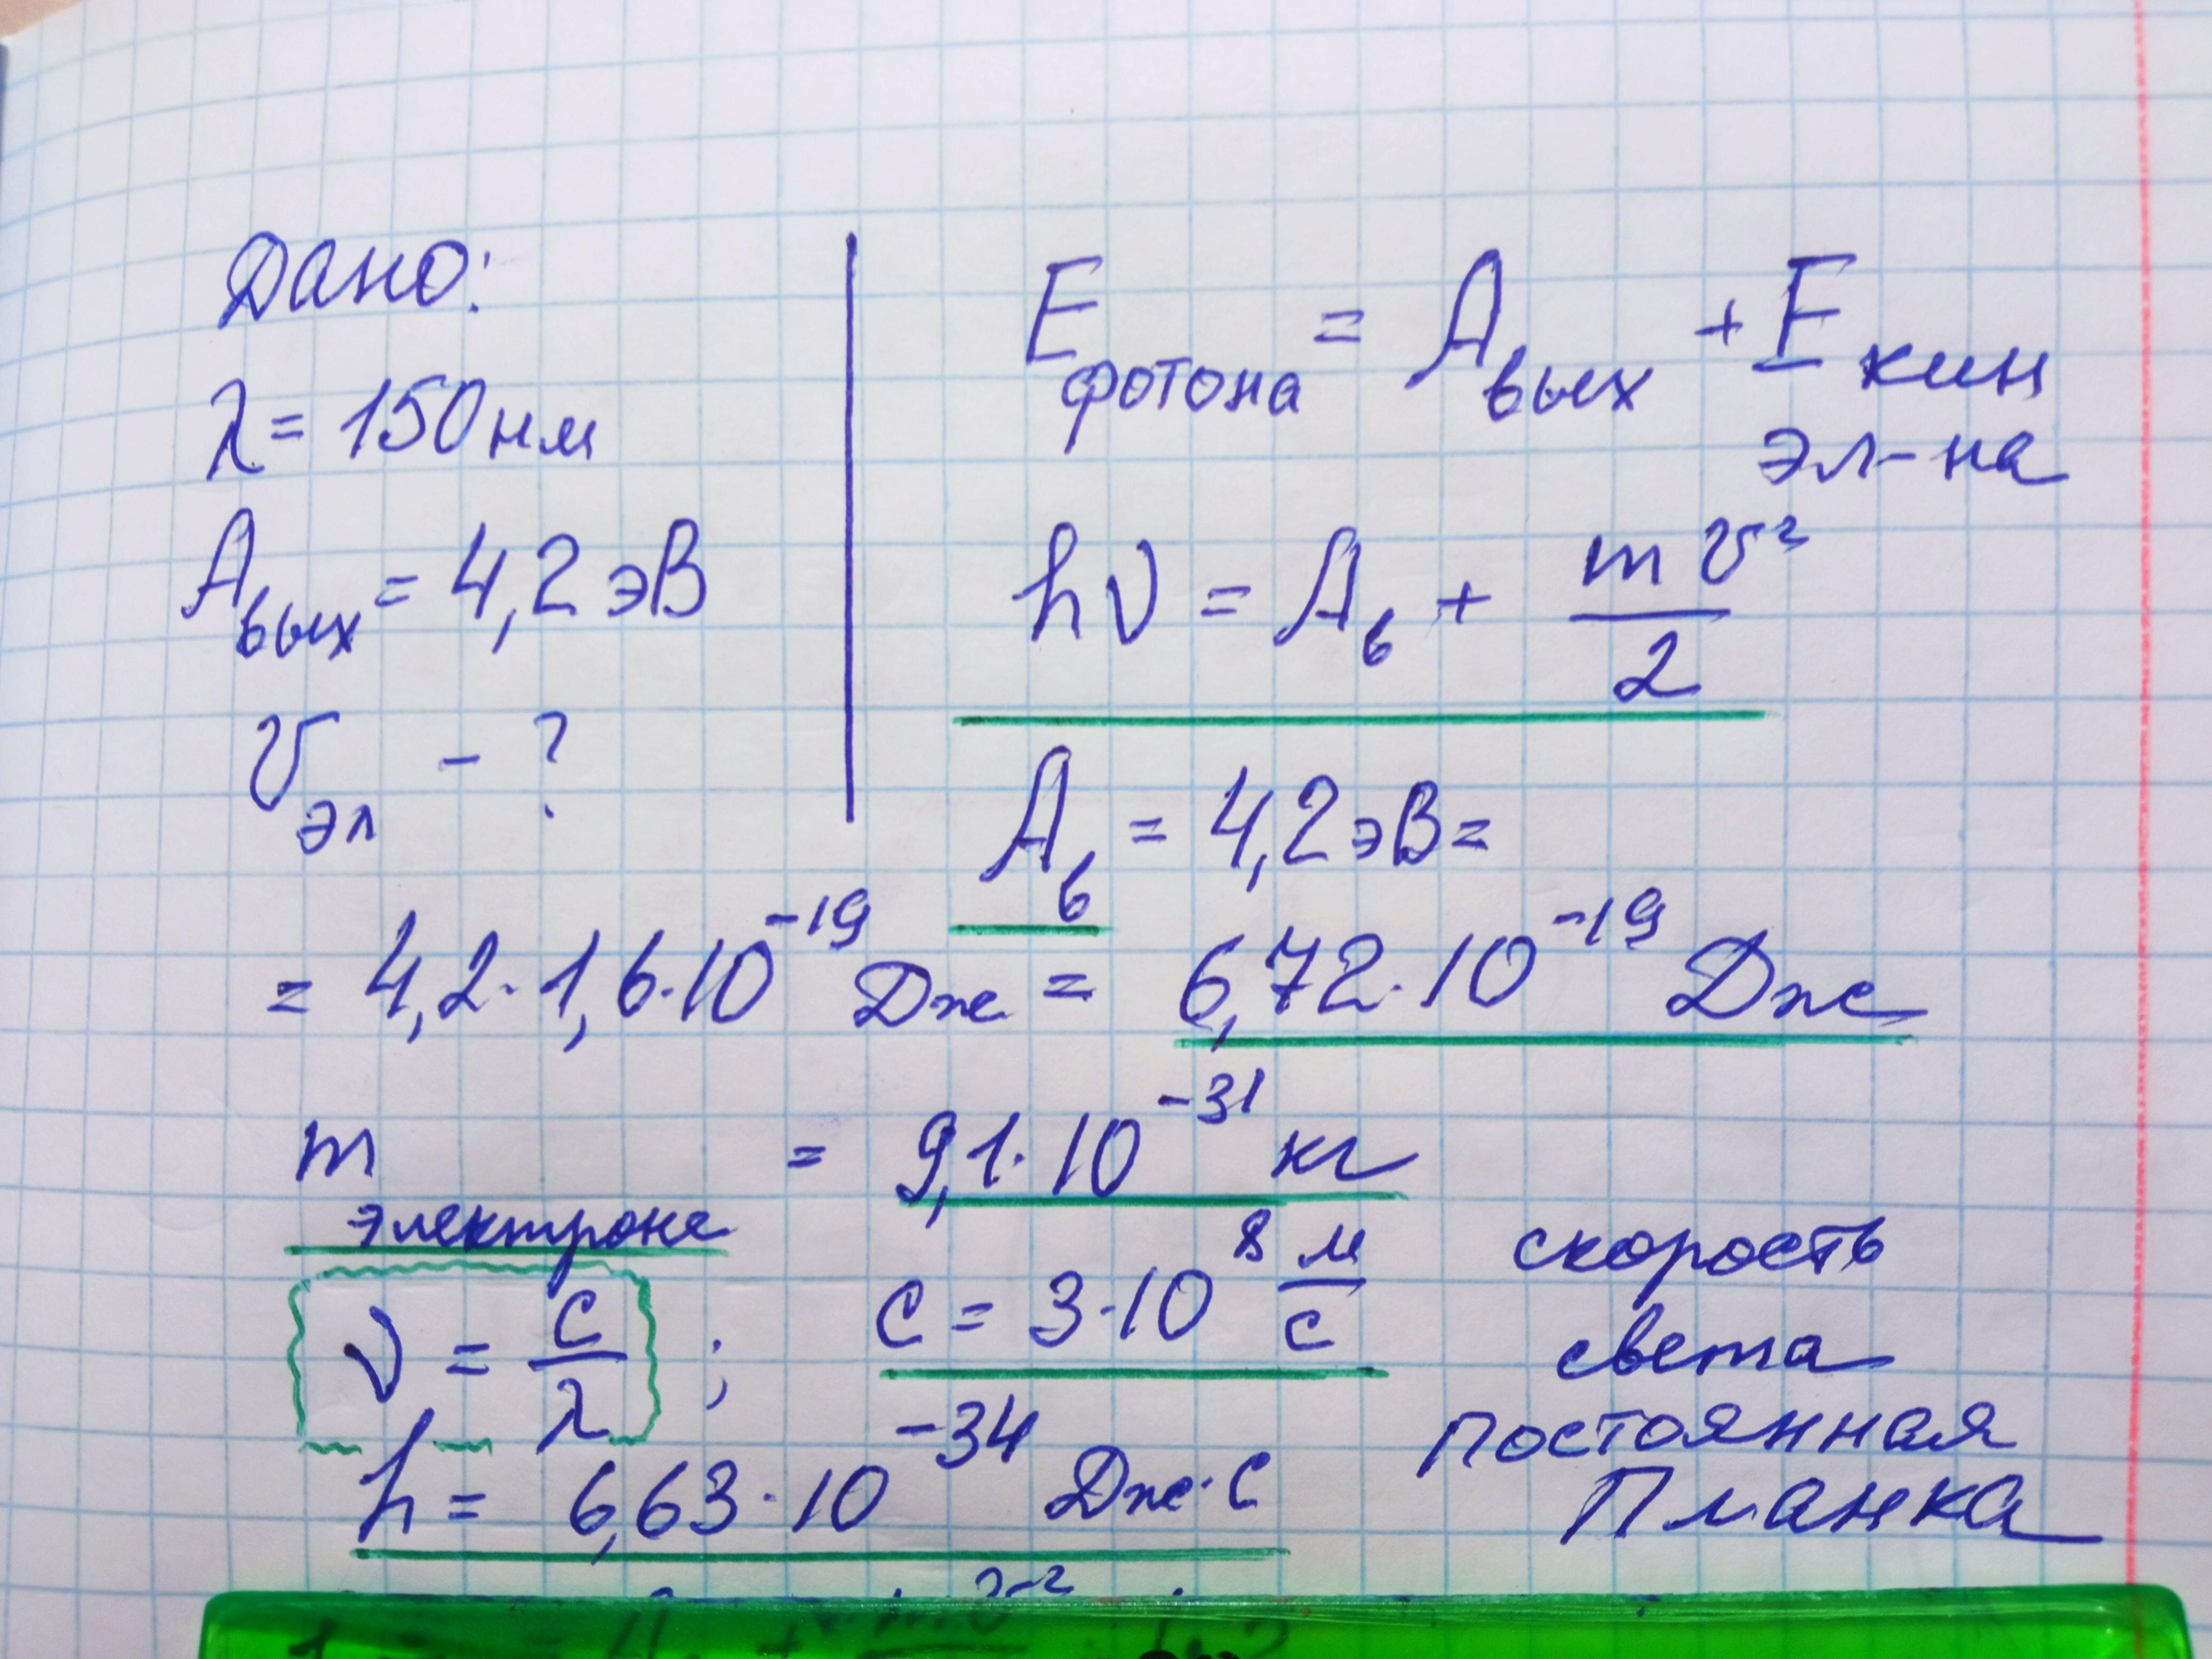 Дано:
λ = 150 нм
A вых = 4,2 эВ
υ эл - ?
E фотона = A вых + E кин эл-на
hν = A в + mυ² / 2
A в = 4,2 эВ =
= 4,2 · 1,6 · 10⁻¹⁹ Дж = 6,72 · 10⁻¹⁹ Дж
m электрона = 9,1 · 10⁻³¹ кг
ν = c / λ ; c = 3 · 10⁸ м/с скорость света
h = 6,63 · 10⁻³⁴ Дж · с постоянная Планка